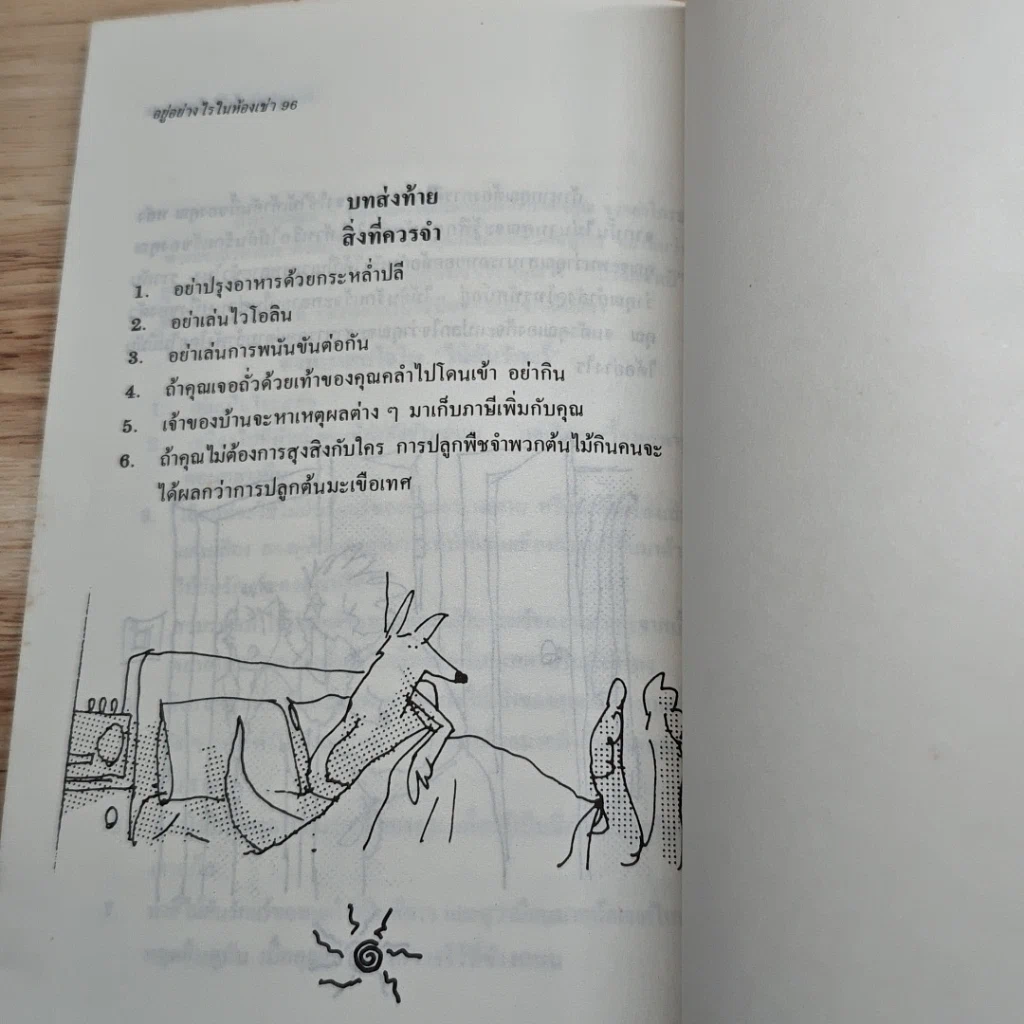 อยู่อย่างไรในห้องเช่า 96
บทส่งท้าย
สิ่งที่ควรจำ
1. อย่าปรุงอาหารด้วยกระหล่ำปลี
2. อย่าเล่นไวโอลิน
3. อย่าเล่นการพนันขันต่อกัน
4. ถ้าคุณเจอถั่วด้วยเท้าของคุณคลำไปโดนเข้า อย่ากิน
5. เจ้าของบ้านจะหาเหตุผลต่าง ๆ มาเก็บภาษีเพิ่มกับคุณ
6. ถ้าคุณไม่ต้องการสุงสิงกับใคร การปลูกพืชจำพวกต้นไม้กินคนจะ
ได้ผลกว่าการปลูกต้นมะเขือเทศ